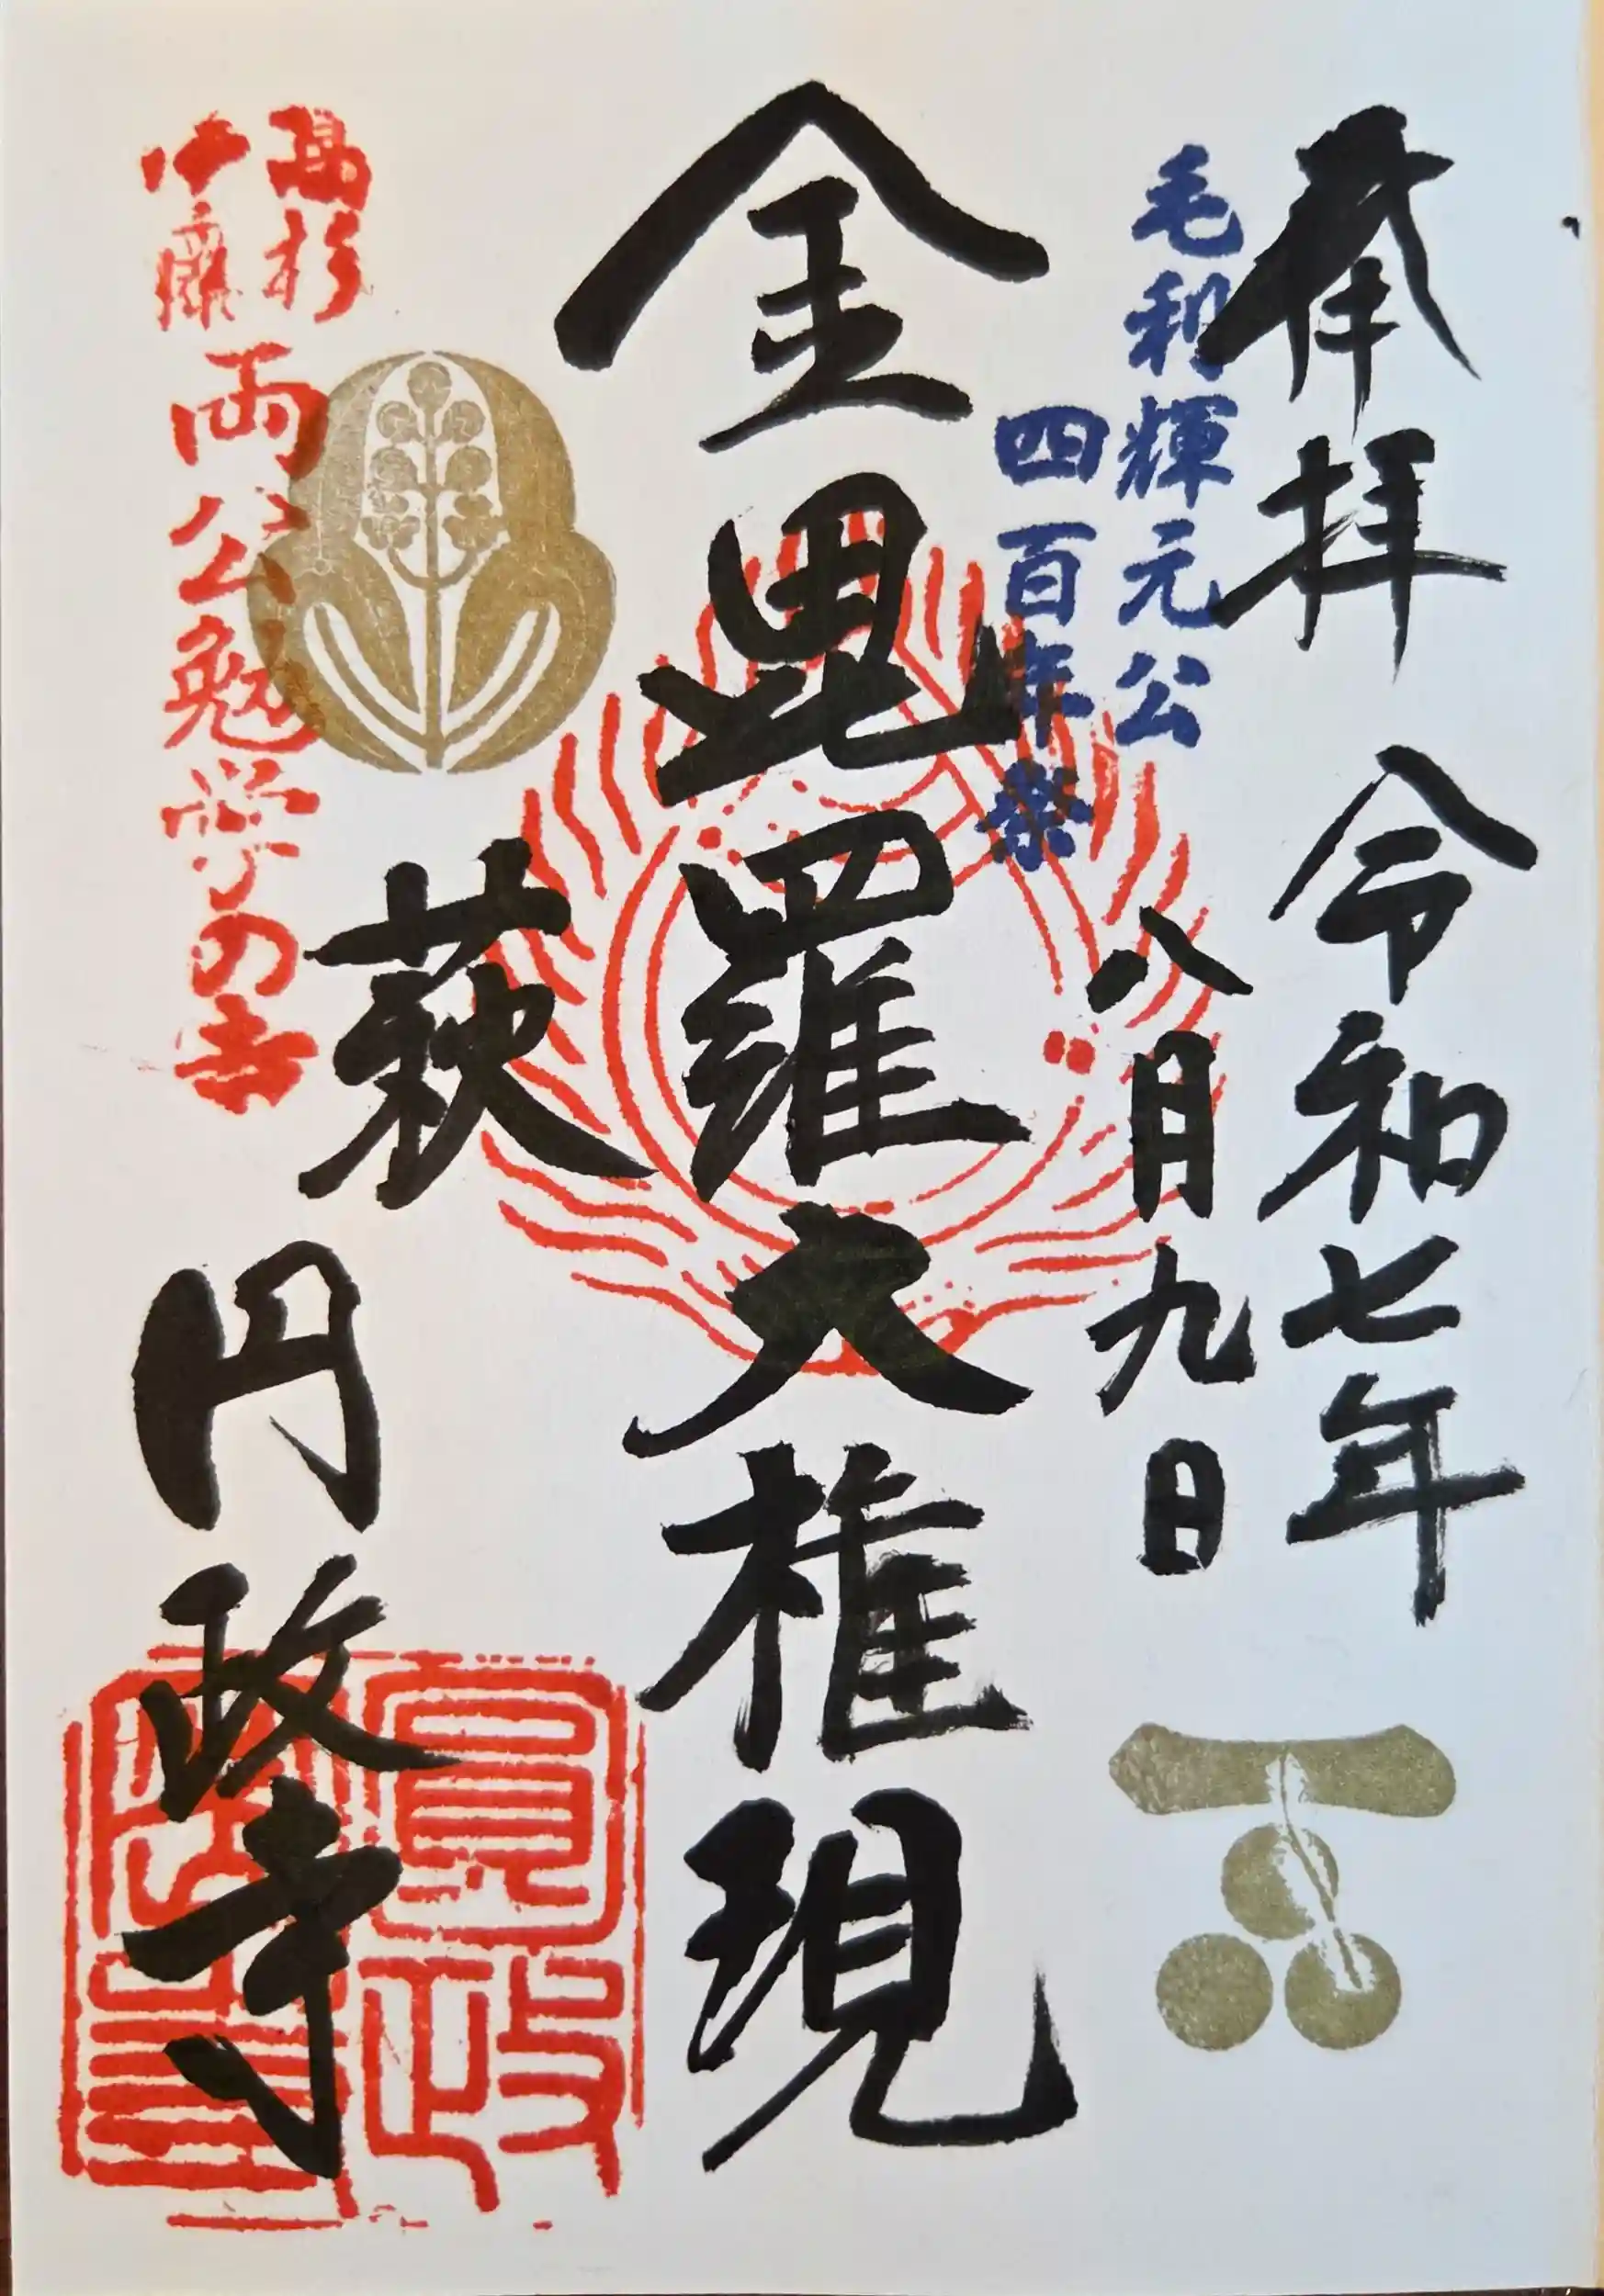 奉拝
令和七年
八月九日
毛利輝元公
四百年祭
金毘羅大権現
萩
円政寺
高杉
伊藤
両公勉学の寺